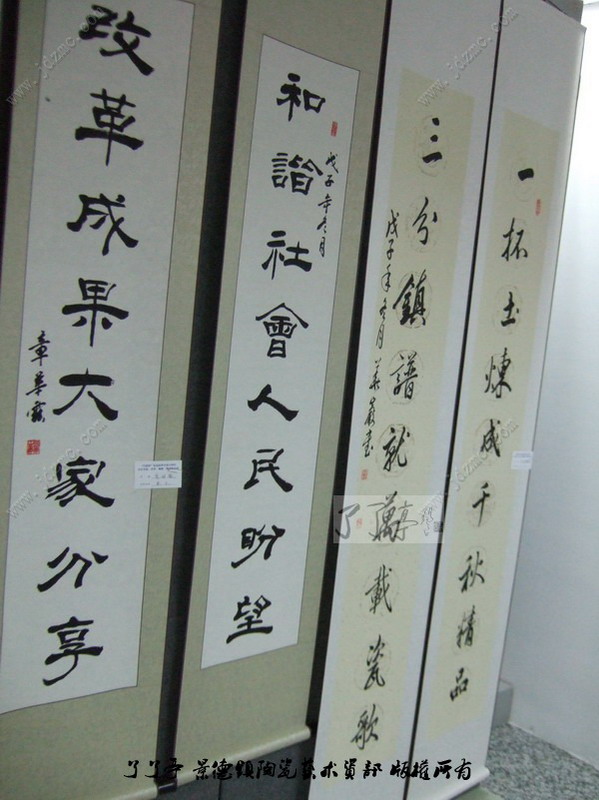 一抔土煉成千秋精品
三分鎮譜就萬載瓷歌
戊子年冬月
和諧社會人民盼望
戊子年冬月
改革成果大家分享
章華
了了亭 景德鎮陶瓷藝术资部 版權所有
www.jdzmc.com